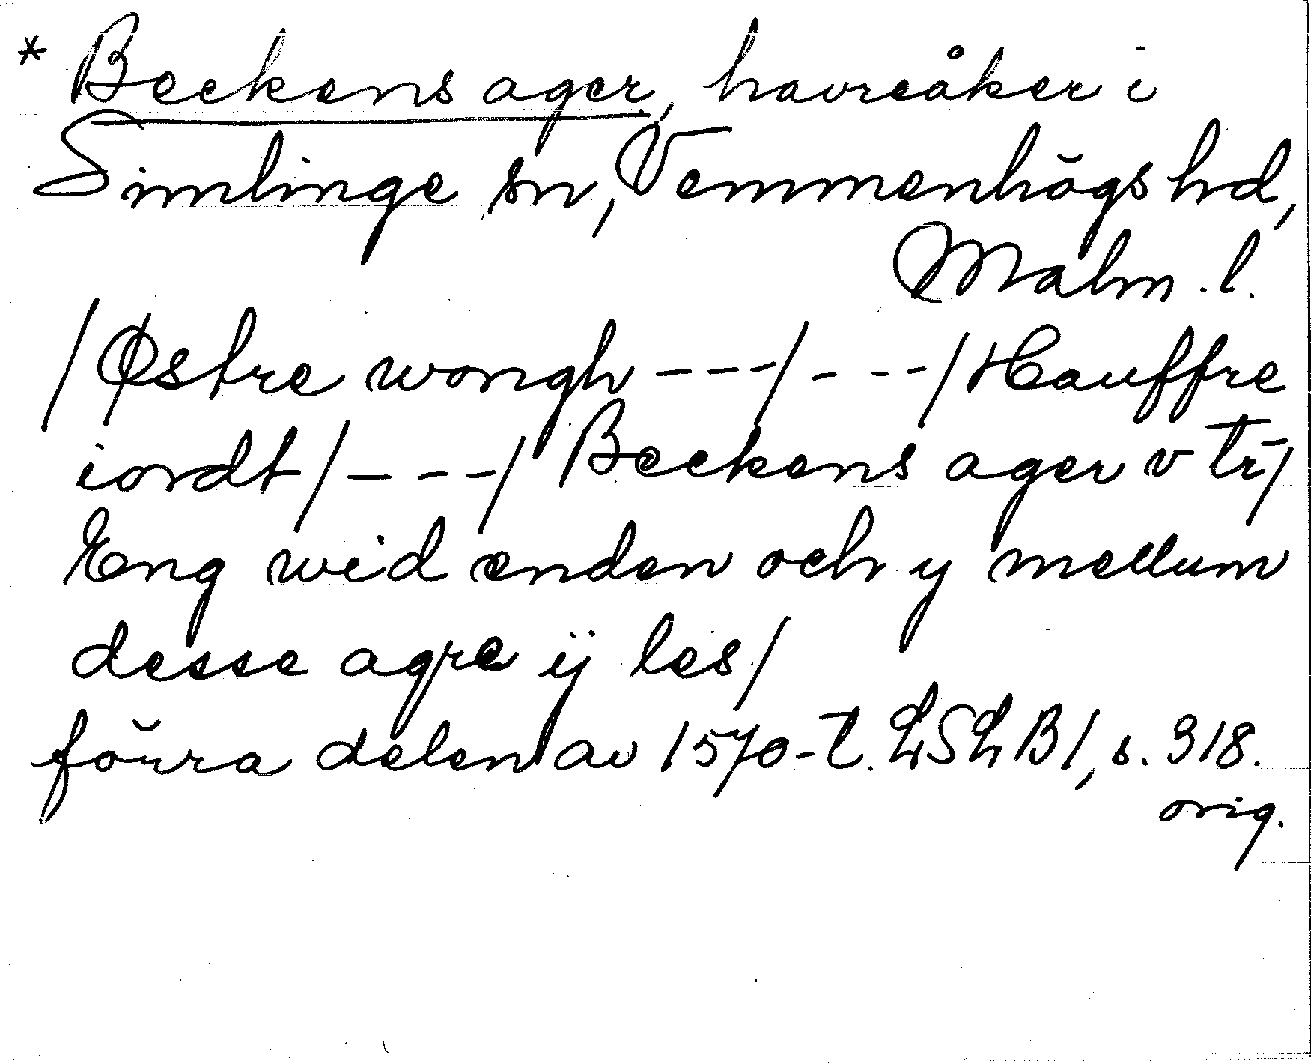 * Beckens ager, havreåker i
Simlinge sn, Vemmenhögs hd,
Malm. l.
/Østre wongh ---/ - --/Hauffre
iordt/---/ Beckens ager v
Eng wid enden och y mellum
desse agre ij les/
förra delen av 1570-t. LSLB1, s. 318.
orig.